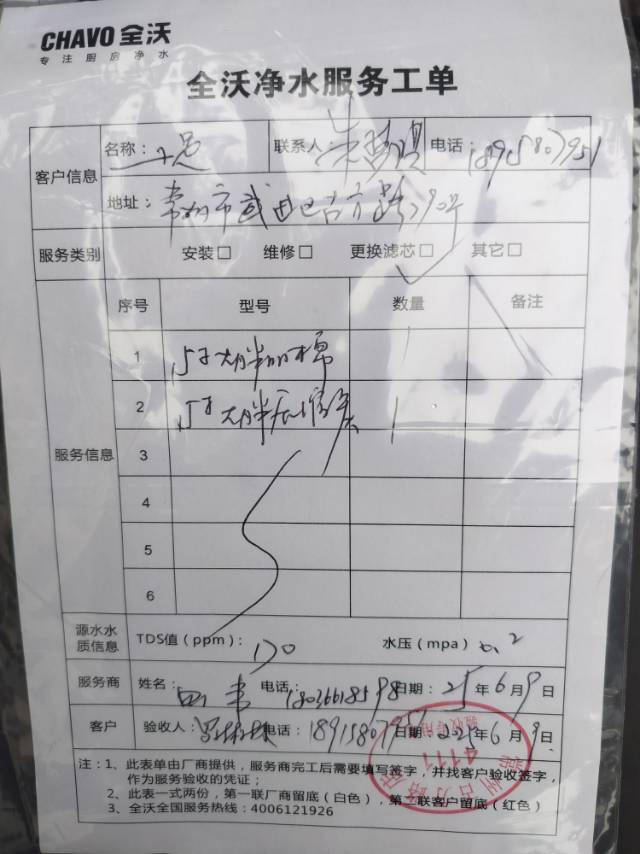 CHAVO 全沃
专注厨房净水
全沃净水服务工单
客户信息
名称：
联系人：
电话：18915807951
地址：常州市武进区古方路290号
服务类别
安装□ 维修□ 更换滤芯□ 其它□
服务信息
序号 型号 数量 备注
1 15寸大胖PP棉 1
2 15寸大胖压缩炭 1
3
4
5
6
源水水质信息
TDS值（ppm）：170 水压（mpa）0.2
服务商 姓名： 电话：18036618598 日期：25年6月9日
客户 验收人： 电话：18915807951 日期：2025年6月9日
验收专用
4111
常州古方路店
注：1、此表单由厂商提供，服务商完工后需要填写签字，并找客户验收签字，
作为服务验收的凭证；
2、此表一式两份，第一联厂商留底（白色），第二联客户留底（红色）
3、全沃全国服务热线：4006121926